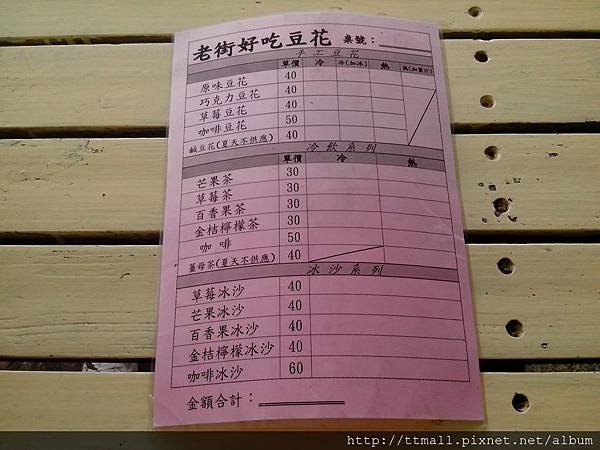 老街好吃豆花 桌號：
手工豆花
單價 冷 冷(加冰) 熱 熱(加薑汁)
原味豆花 40
巧克力豆花 40
草莓豆花 40
咖啡豆花 50
鹹豆花(夏天不供應) 40
冷飲系列
單價 冷 熱
芒果茶 30
草莓茶 30
百香果茶 30
金桔檸檬茶 30
咖啡 50
薑母茶(夏天不供應) 40
冰沙系列
草莓冰沙 40
芒果冰沙 40
百香果冰沙 40
金桔檸檬冰沙 40
咖啡冰沙 60
金額合計：
http://ttmall.pixnet.net/album